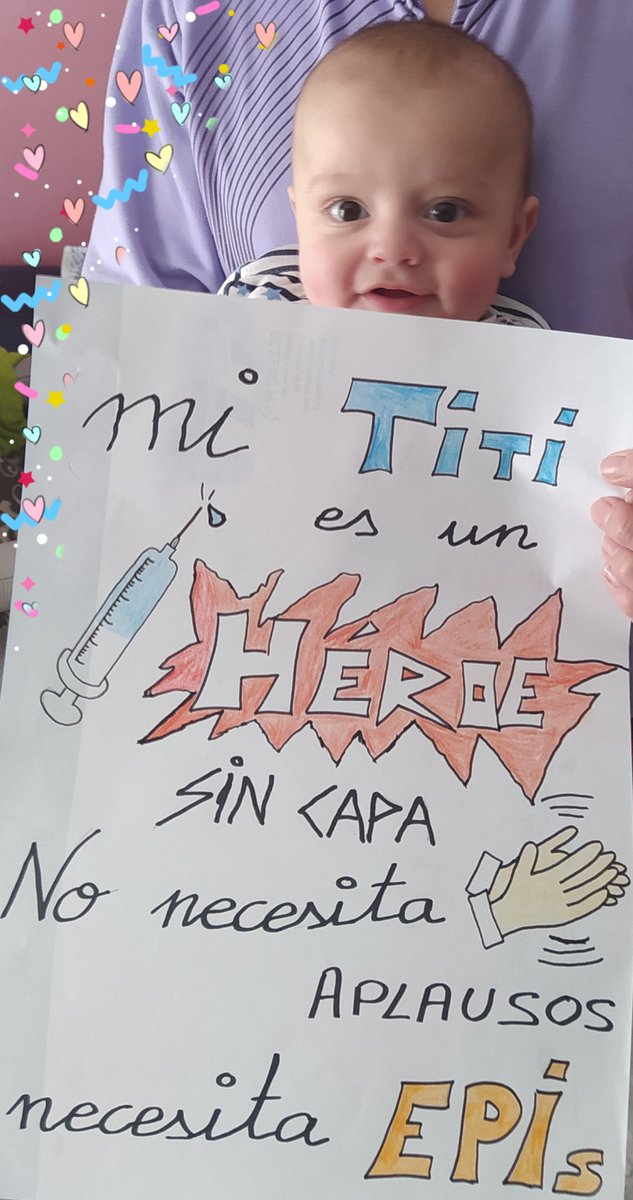 mi TiTi
es un
HÉROE
SIN CAPA
No necesita
APLAUSOS
necesita EPIs